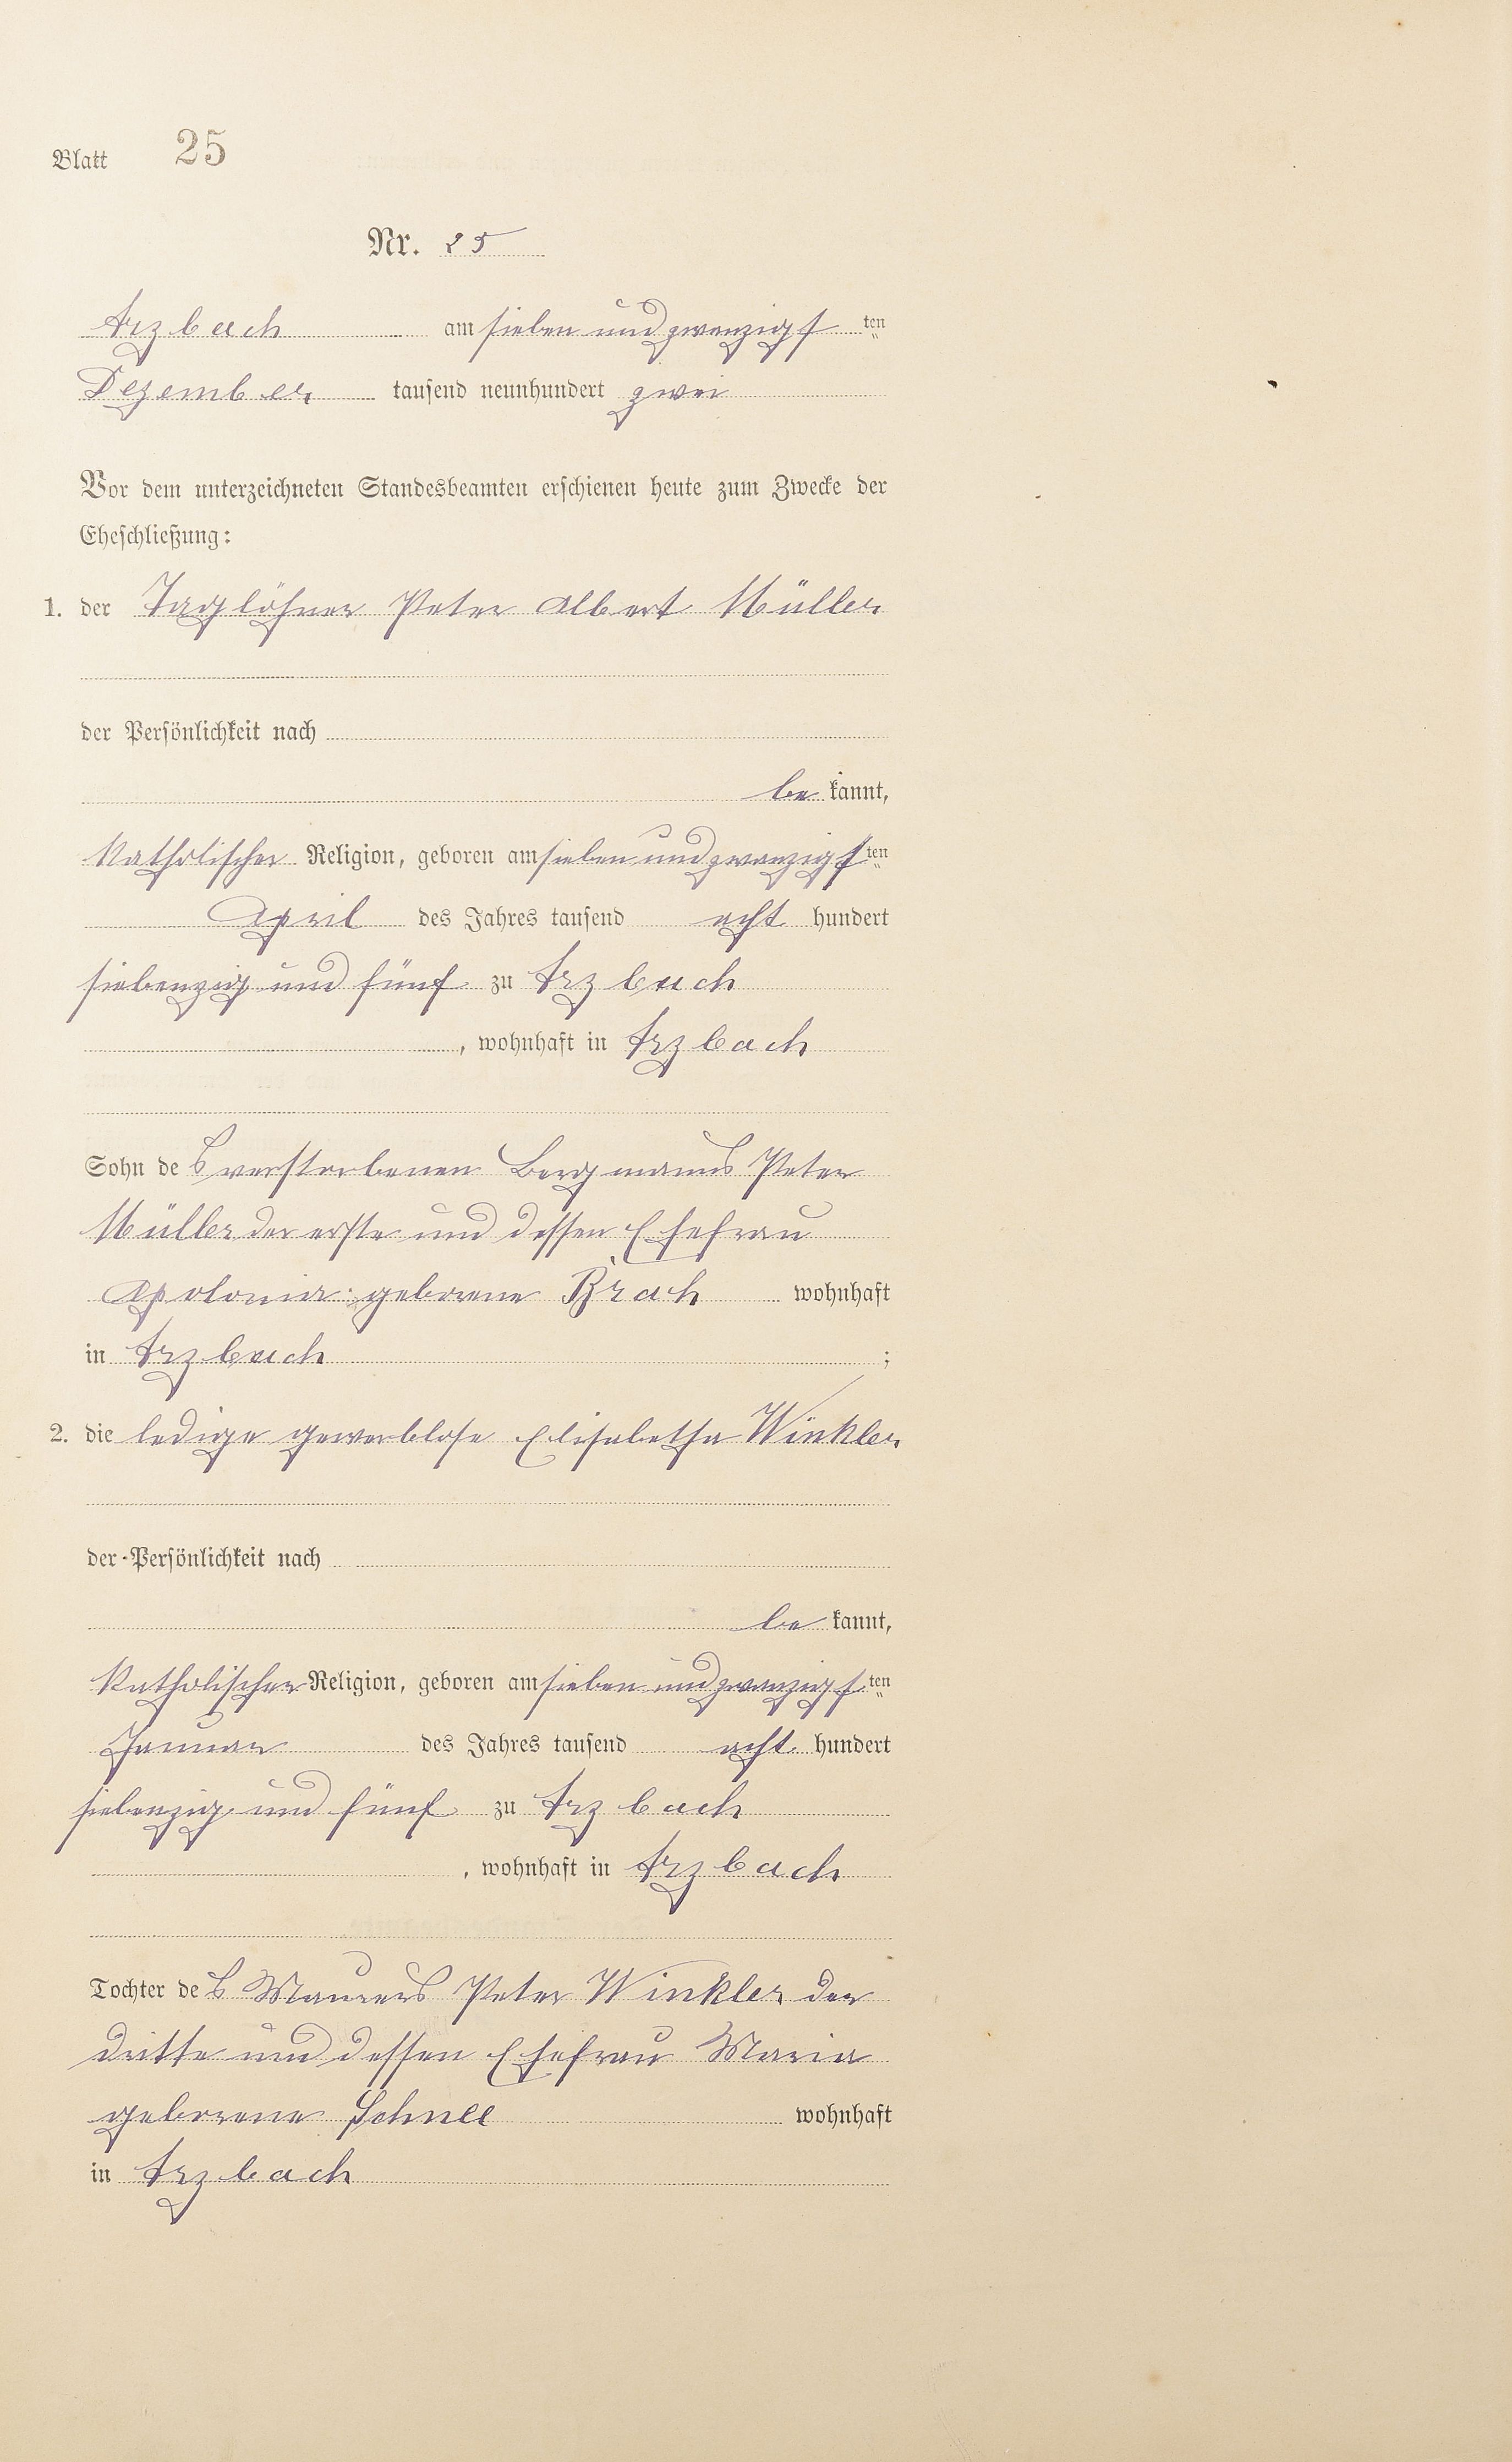 Blatt 25
Nr. 25
Arzbach am sieben und zwanzigsten
Dezember tausend neunhundert zwei
Vor dem unterzeichneten Standesbeamten erschienen heute zum Zwecke der
Eheschließung:
1. der Taglöhner Peter Albert Müller
der Persönlichkeit nach
be kannt,
katholischer Religion, geboren am sieben und zwanzigsten
April des Jahres tausend acht hundert
siebenzig und fünf zu Arzbach
, wohnhaft in Arzbach
Sohn des verstorbenen Bergmanns Peter
Müller der erste und dessen Ehefrau
Apolonia geborene Brach wohnhaft
in Arzbach ;
2. die ledige gewerblose Elisabetha Winkler
der Persönlichkeit nach
be kannt,
katholischer Religion, geboren am sieben und zwanzigsten
Januar des Jahres tausend acht hundert
siebenzig und fünf zu Arzbach
, wohnhaft in Arzbach
Tochter des Maurers Peter Winkler der
dritte und dessen Ehefrau Maria
geborene Schnee wohnhaft
in Arzbach